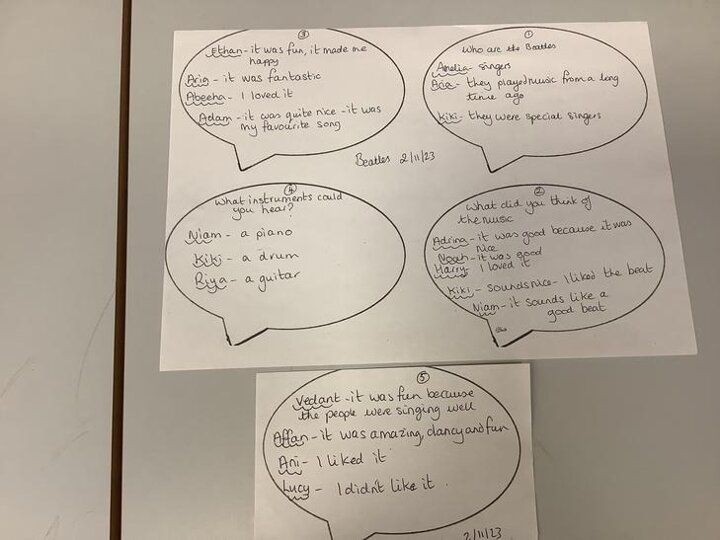 ①
Who are the Beatles
Amelia - singers
Ace - they played music from a long
time ago
Kiki - they were special singers
②
What did you think of
the music
Adrina - it was good because it was
nice
Noah - it was good
Harry - I loved it
Kiki - sounds nice - I liked the beat
Niam - it sounds like a
good beat
③
Ethan - it was fun, it made me
happy
Aria - it was fantastic
Abeeha - I loved it
Adam - it was quite nice - it was
my favourite song
Beatles 2/11/23
④
What instruments could
you hear?
Niam - a piano
Kiki - a drum
Riya - a guitar
⑤
Vedant - it was fun because
the people were singing well
Affan - it was amazing, dancy and fun
Ani - I liked it
Lucy - I didn't like it.
2/11/23